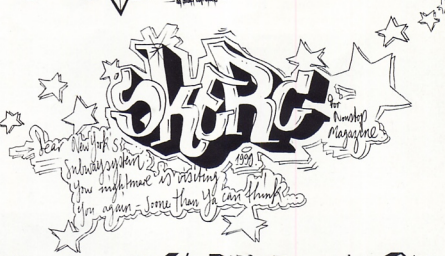 SKERC
1990
for
Nonstop
Magazine
Dear New York's
Subwaysystem,
You nightmare is visiting
you again - soone than Ya can think...